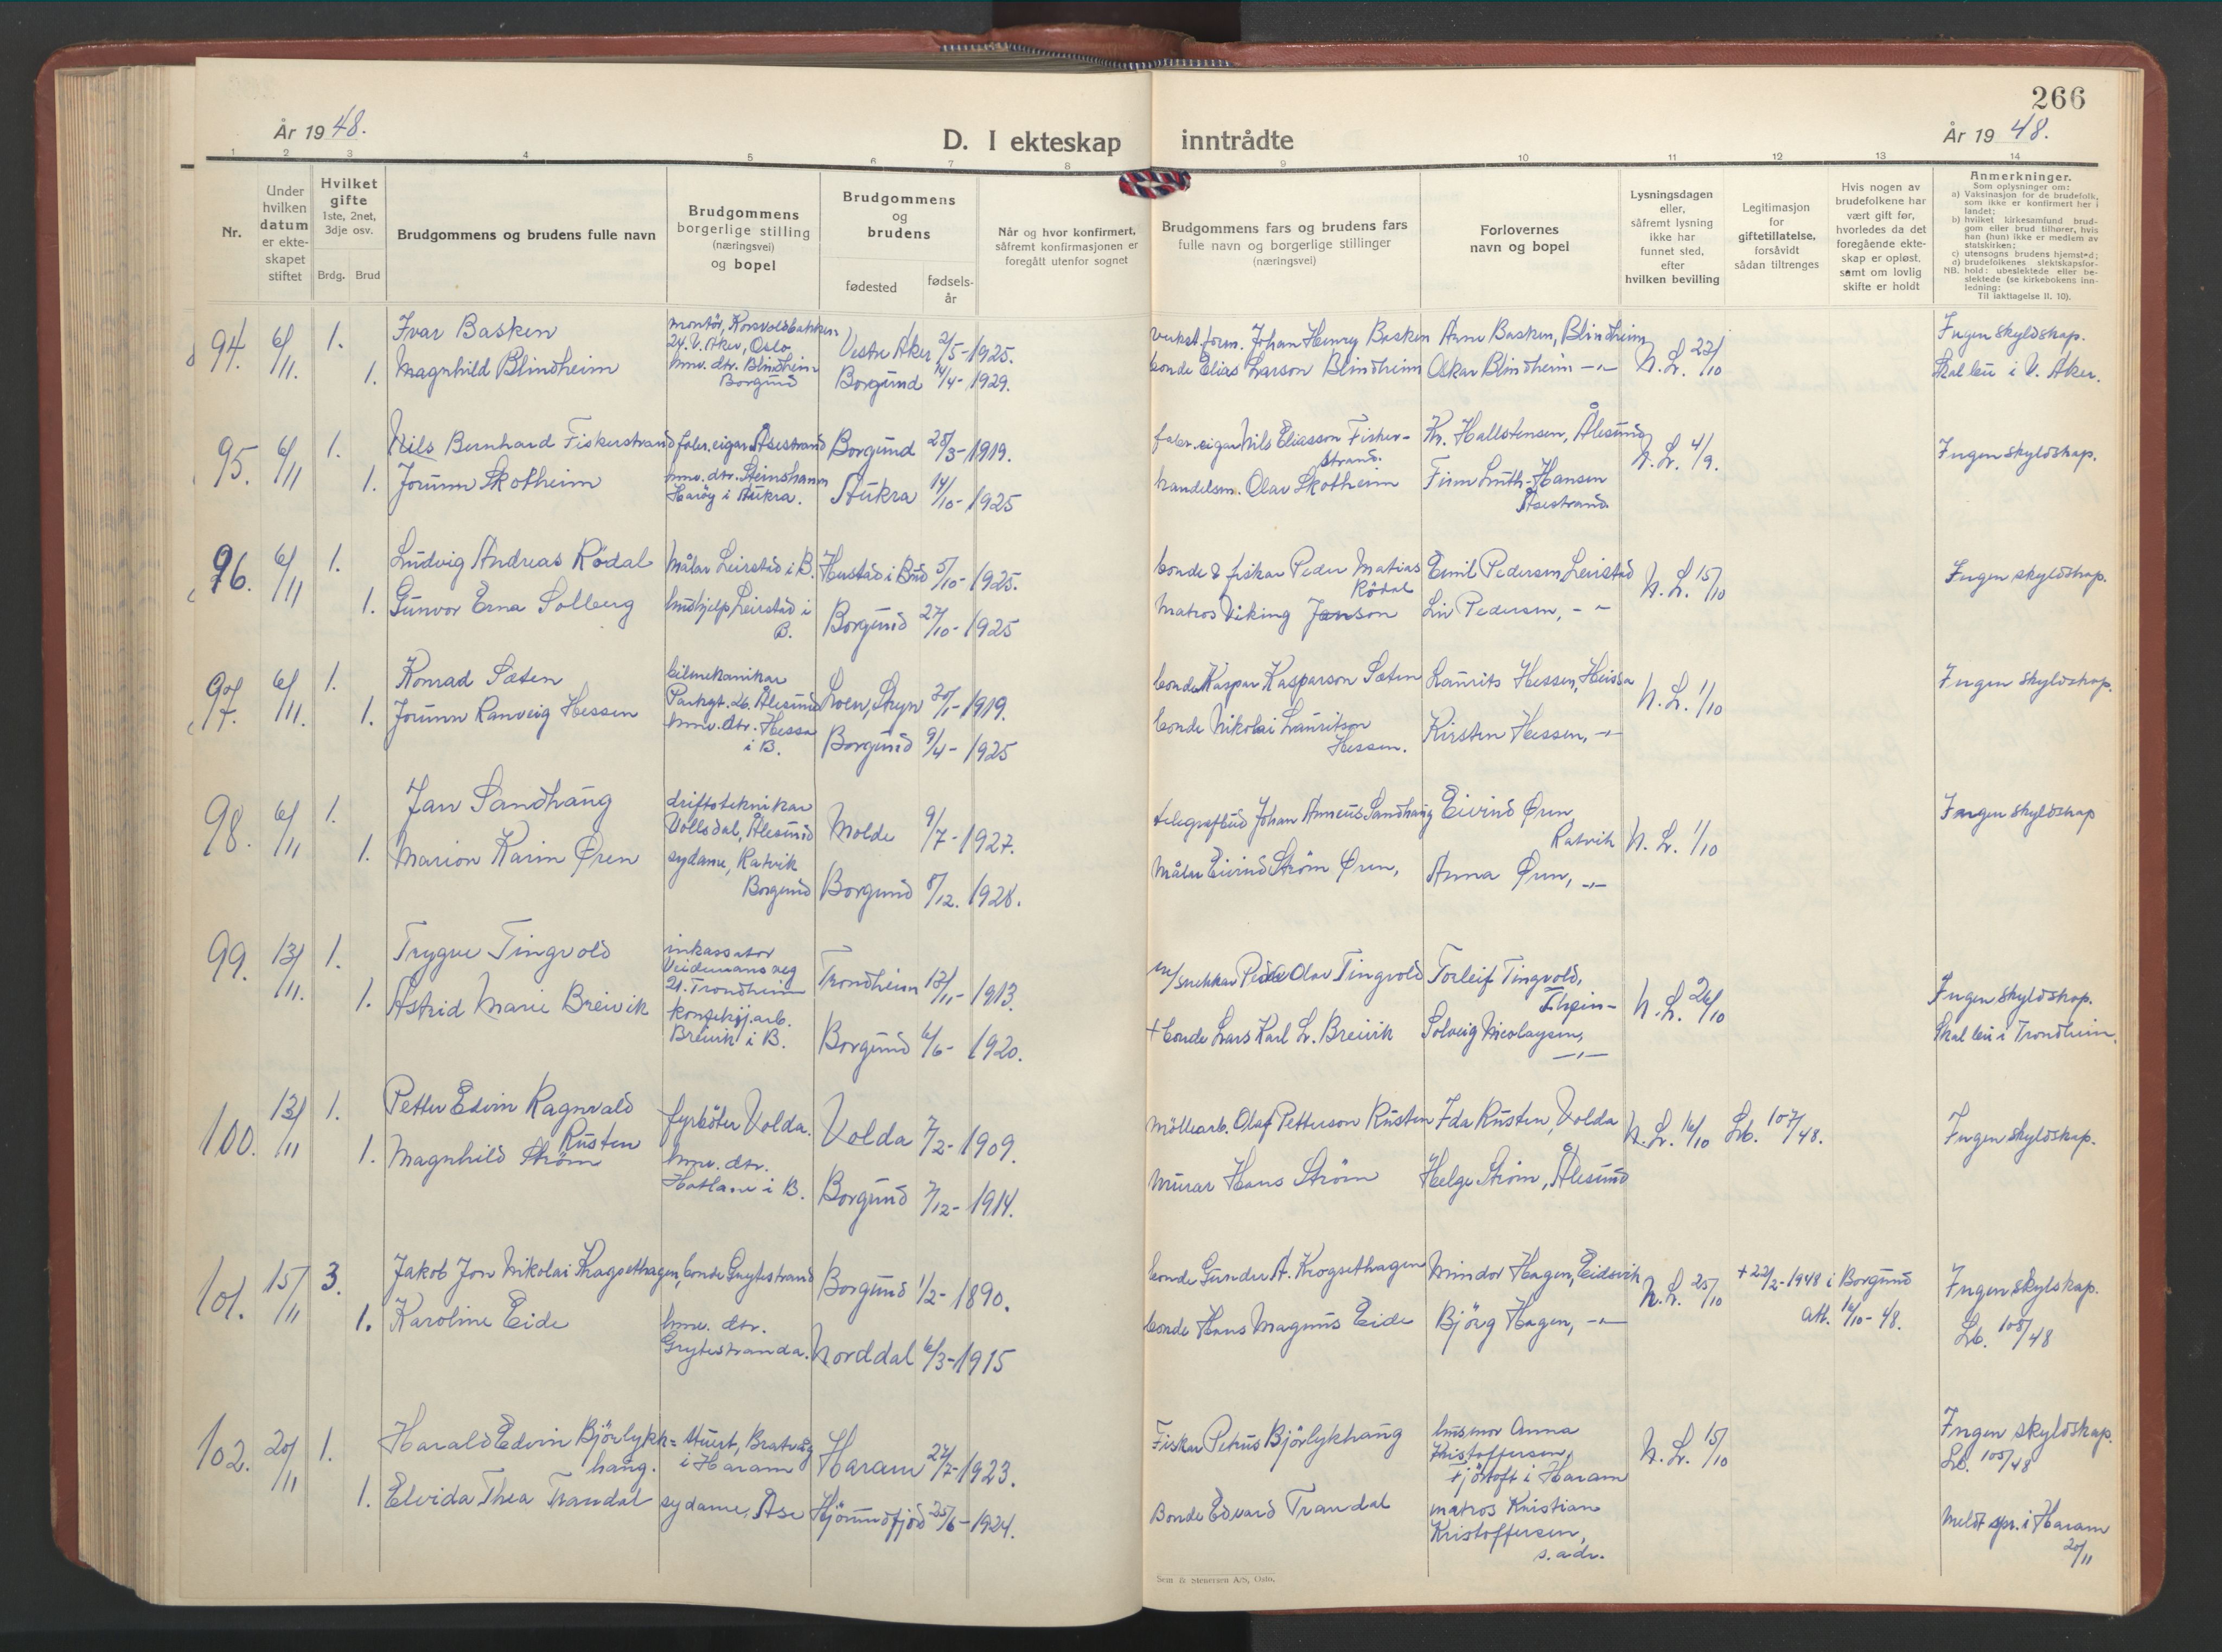 266
År 1948.
D. I ekteskap inntrådte
År 1948.
1 2 3 4 5 6 7 8 9 10 11 12 13 14
Nr.
Under
hvilken
datum
er ekte-
skapet
stiftet
Hvilket
gifte
1ste, 2net,
3dje osv.
Brdg. Brud
Brudgommens og brudens fulle navn
Brudgommens
borgerlige stilling
(næringsvei)
og bopel
Brudgommens
og
brudens
fødested
fødsels-
år
Når og hvor konfirmert,
såfremt konfirmasjonen er
foregått utenfor sognet
Brudgommens fars og brudens fars
fulle navn og borgerlige stillinger
(næringsvei)
Forlovernes
navn og bopel
Lysningsdagen
eller,
såfremt lysning
ikke har
funnet sted,
efter
hvilken bevilling
Legitimasjon
for
giftetillatelse,
forsåvidt
sådan tiltrenges
Hvis nogen av
brudefolkene har
vært gift før,
hvorledes da det
foregående ekte-
skap er opløst,
samt om lovlig
skifte er holdt
Anmerkninger.
Som oplysninger om:
a) Vaksinasjon for de brudefolk,
som ikke er konfirmert her i
landet;
b) hvilket kirkesamfund brud-
gom eller brud tilhører, hvis
han (hun) ikke er medlem av
statskirken;
c) utensogns brudens hjemsted;
d) brudefolkenes slektskapsfor-
NB. hold: ubeslektede eller be-
slektede (se kirkebokens inn-
ledning:
Til iakttagelse II. 10).
94. 6/11. 1. Ivar Basken
montör, Korsvoldbakken
24. V. Aker, Oslo
Vestre Aker 2/5-1925.
verkst.form. Johan Henry Basken
Anne Basken, Blindheim
N. L. 22/10
Ingen skyldskap.
1. Magnhild Blindheim
hmv. dtr. Blindheim
Borgund
Borgund 14/4-1929.
bonde Elias Larson Blindheim
Oskar Blindheim -"-
Skal bu i V. Aker.
95. 6/11 1. Nils Bernhard Fiskerstrand
fabr. eigar Åsestrand
Borgund 28/3-1919.
fabr. eigar Nils Eliasson Fisker-
strand.
Kr. Hallstensen, Ålesund
N. L. 4/9.
Ingen skyldskap.
1. Jorunn Skotheim
hmv. dtr. Steinshamn
Haröy i Aukra.
Aukra 14/10-1925
handelsm. Olav Skotheim
Finn Luth-Hansen
Åsestrand
96. 6/11 1. Ludvig Andreas Rödal
Målar Leirstad i B.
Hustad i Bud 5/10-1925.
bonde & fiskar Peder Matias
Rödal
Emil Pedersen, Leirstad
N. L. 15/10
Ingen skyldskap.
1. Gunvor Erna Solberg
hushjelp Leirstad i
B.
Borgund 27/10-1925
Matros Viking Janson
Liv Pedersen, - -
97. 6/11. 1. Konrad Sæten
bilmekanikar
Parkgt. 26. Ålesund
Loen, Stryn 30/1-1919.
bonde Kaspar Kasparson Sæten
Laurits Hessen, Heissa
N. L. 1/10
Ingen skyldskap.
1. Jorunn Ranveig Hessen
hmv. dtr. Hessa
i B.
Borgund 9/4-1925
bonde Nikolai Lauritson
Hessen.
Kirsten Hessen, -"-
98. 6/11 1. Jan Sandhaug
driftsteknikar
Vollsdal, Ålesund
Molde 9/7-1927.
telegrafbud Johan Anneus Sandhaug
Eivind Øren,
Ratvik
N. L. 1/10
Ingen skyldskap
1. Marion Karin Øren
sydame, Ratvik
Borgund
Borgund 8/12. 1928.
Målar Eivind Ström Øren,
Anna Øren, -"-
99. 13/11. 1. Trygve Tingvold
inkassator
21. Trondheim
Trondheim 13/11-1913.
m/snekkar Peder Olav Tingvold
Torleif Tingvold,
N. L. 26/10
Ingen skyldskap.
1. Astrid Marie Breivik
konfeksj.arb.
Breivik i B.
Borgund 6/6-1920.
+ bonde Lars Karl L. Breivik
Solveig Nicolaysen,
-"-
Skal bu i Trondheim.
100. 13/11 1. Petter Edvin Ragnvald
Rusten
fyrböter Volda.
Volda 7/2-1909.
Möllearb. Olaf Petterson Rusten
Ida Rusten, Volda
N. L. 16/10
Lb. 107/48.
Ingen skyldskap.
1. Magnhild Ström
hmv. dtr.
Hatlane i B.
Borgund 7/12-1914.
Murar Hans Ström
Helge Ström, Ålesund
101. 15/11 3. Jakob Jon Nikolai Kragsethagen,
bonde Grytestrand
Borgund 1/2-1890.
bonde Gunder A. Krogsethagen
Mindor Hagen, Eidsvik
N. L. 25/10
+ 22/2-1948 i Borgund
att. 16/10-48.
Ingen skyldskap.
Lb. 108/48
1. Karoline Eide
hmv. dtr.
Grytestranda.
Norddal 6/3-1915
bonde Hans Magnus Eide
Björg Hagen, -"-
102. 20/11 1. Harald Edvin Björlykk=
haug.
stuert, Brattvåg
i Haram
Haram 27/7-1923.
Fiskar Petrus Björlykhaug
husmor Anna
Kristoffersen,
Fjörtoft i Haram
N. L. 15/10
Ingen skyldskap.
Lb. 105/48
1. Elvida Thea Trandal
sydame, Åse
Hjörundfjord 25/6-1924.
Bonde Edvard Trandal
matros Kristian
Kristoffersen,
s. adr.
Meldt spr. i Haram
20/11
Sem & Stenersen A/S, Oslo.